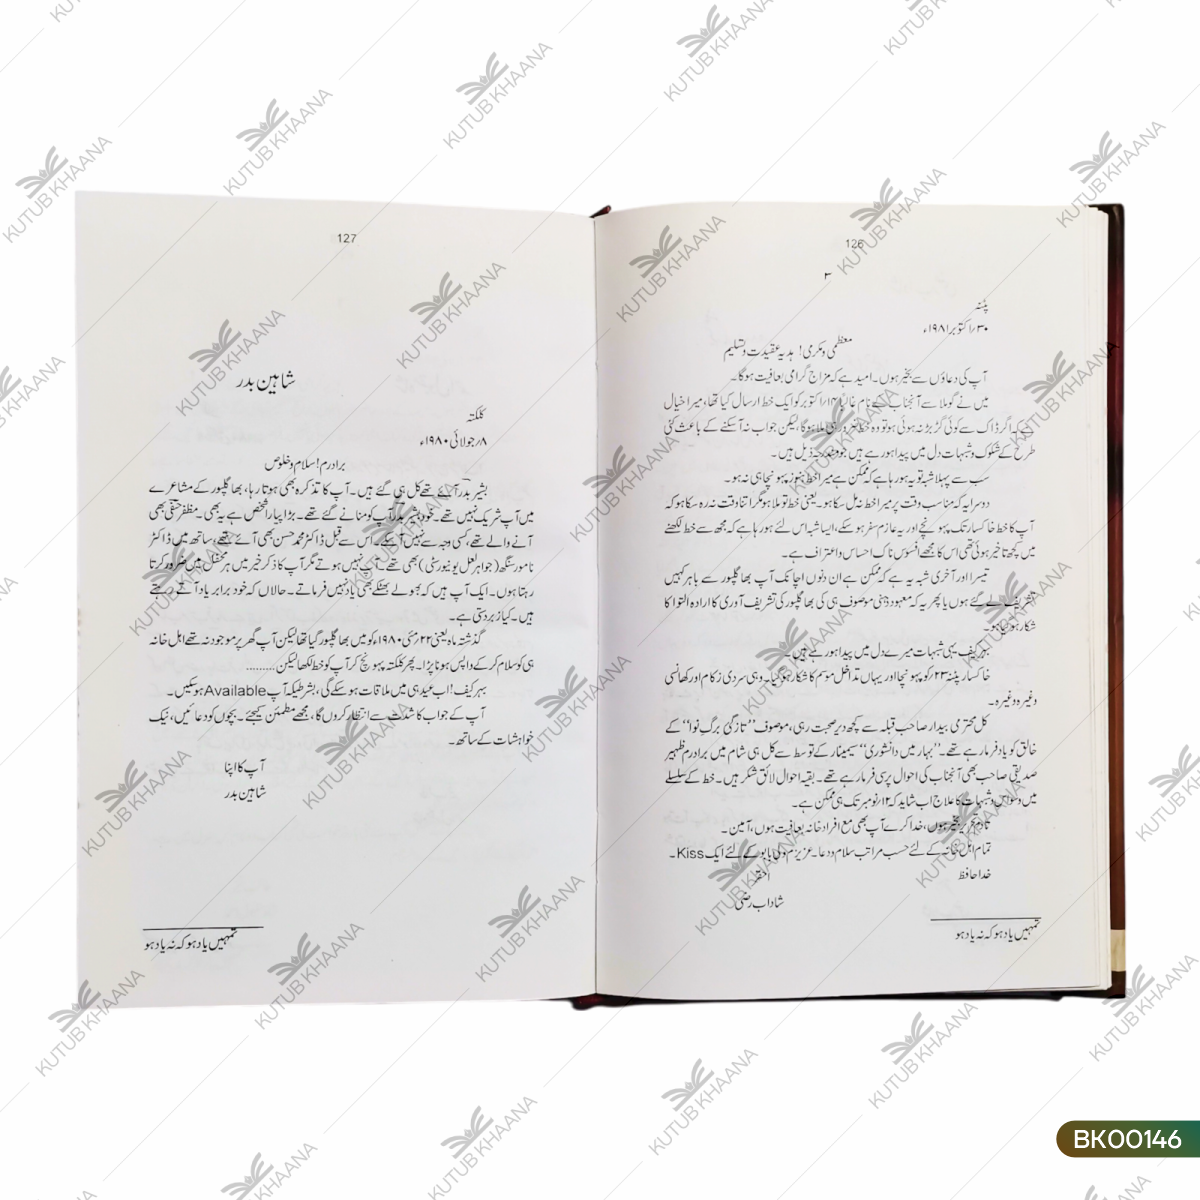 126
۲
پٹنہ
۳۰؍اکتوبر ۱۹۸۱ء
معظمی و مکرمی! ہدیہ عقیدت و تسلیم
آپ کی دعاؤں سے بخیر ہوں۔ امید ہے کہ مزاج گرامی بعافیت ہوگا۔
میں نے گوملا سے آنجناب کے نام غالباً ۱۴؍اکتوبر کو ایک خط ارسال کیا تھا، میرا خیال
ہے کہ اگر ڈاک سے کوئی گڑبڑ نہ ہوئی ہو تو وہ خط ضرور ہی ملا ہوگا، لیکن جواب نہ آسکنے کے باعث کئی
طرح کے شکوک و شبہات دل میں پیدا ہو رہے ہیں جو مندرجہ ذیل ہیں۔
سب سے پہلا شبہ تو یہ ہو رہا ہے کہ ممکن ہے میرا خط ہنوز پہونچا ہی نہ ہو۔
دوسرا یہ کہ مناسب وقت پر میرا خط نہ مل سکا ہو۔ یعنی خط تو ملا ہو مگر اتنا وقت نہ رہ سکا ہو کہ
آپ کا خط خاکسار تک پہونچے اور یہ عازم سفر ہو سکے، ایسا شبہ اس لئے ہو رہا ہے کہ مجھ سے خط لکھنے
میں کچھ تاخیر ہوئی تھی اس کا مجھے افسوس ناک احساس و اعتراف ہے۔
تیسرا اور آخری شبہ یہ ہے کہ ممکن ہے ان دنوں اچانک آپ بھاگلپور سے باہر کہیں
تشریف لے گئے ہوں یا پھر یہ کہ معہود ذہنی موصوف ہی کی بھاگلپور کی تشریف آوری کا ارادہ التوا کا
شکار ہو گیا ہو۔
بہر کیف یہی شبہات میرے دل میں پیدا ہو رہے ہیں۔
خاکسار پٹنہ ۲۳؍کو پہونچا اور یہاں تداخل موسم کا شکار ہو گیا۔ وہی سردی زکام اور کھانسی
وغیرہ وغیرہ۔
کل محترمی بیدار صاحب قبلہ سے کچھ دیر صحبت رہی، موصوف ’’تازگی برگ نوا‘‘ کے
خالق کو یاد فرما رہے تھے۔ ’’بہار میں دانشوری‘‘ سیمینار کے توسط سے کل ہی شام میں برادرم ظہیر
صدیقی صاحب بھی آنجناب کی احوال پرسی فرما رہے تھے۔ بقیہ احوال لائق شکر ہیں۔ خط کے سلسلے
میں وسواس و شبہات کا علاج اب شاید کہ ۱۲؍نومبر تک ہی ممکن ہے۔
تادم تحریر بخیر ہوں، خدا کرے آپ بھی مع افراد خانہ بعافیت ہوں، آمین۔
تمام اہل خانہ کے لئے حسب مراتب سلام و دعا۔ عزیزم وکی بابو کے لئے ایک Kiss۔
خدا حافظ
احقر
شاداب رضی
تمہیں یاد ہو کہ نہ یاد ہو
127
شاہین بدر
کلکتہ
۸؍جولائی ۱۹۸۰ء
برادرم! سلام و خلوص
بشیر بدر آئے تھے کل ہی گئے ہیں۔ آپ کا تذکرہ بھی ہوتا رہا، بھاگلپور کے مشاعرے
میں آپ شریک نہیں تھے۔ خود بشیر بدر آپ کو منانے گئے تھے۔ بڑا پیارا شخص ہے یہ بھی۔ مظفر حنفی بھی
آنے والے تھے، کسی وجہ سے نہیں آسکے۔ اس سے قبل ڈاکٹر محمد حسن بھی آئے تھے، ساتھ میں ڈاکٹر
نامور سنگھ (جواہر لعل یونیورسٹی) بھی تھے۔ آپ نہیں ہوتے مگر آپ کا ذکر خیر میں ہر محفل میں ضرور کرتا
رہتا ہوں۔ ایک آپ ہیں کہ بھولے بھٹکے بھی یاد نہیں فرماتے۔ حالاں کہ خود برابر یاد آتے رہتے
ہیں۔ کیا زبردستی ہے۔
گذشتہ ماہ یعنی ۲۲؍مئی ۱۹۸۰ء کو میں بھاگلپور گیا تھا لیکن آپ گھر پر موجود نہ تھے اہل خانہ
ہی کو سلام کر کے واپس ہونا پڑا۔ پھر کلکتہ پہونچ کر آپ کو خط لکھا لیکن ........
بہر کیف! اب عید ہی میں ملاقات ہو سکے گی، بشرطیکہ آپ Available ہو سکیں۔
آپ کے جواب کا شدت سے انتظار کروں گا، مجھے مطمئن کیجئے۔ بچوں کو دعائیں، نیک
خواہشات کے ساتھ۔
آپ کا اپنا
شاہین بدر
تمہیں یاد ہو کہ نہ یاد ہو
KUTUB KHAANA
BK00146